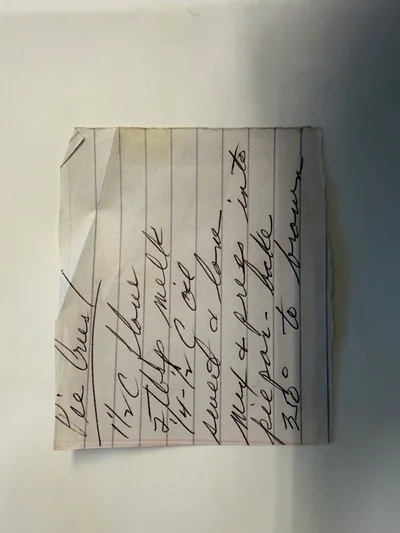 Pie Crust
1 1/2 C flour
2 Tbsp milk
1/4-1/2 C oil
sweet & low
Mix & press into
pie pan - bake
350° to brown